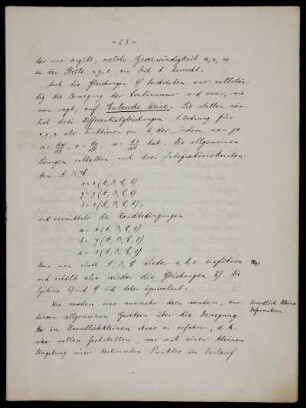 - 23 -
der nur angibt, welche Geschwindigkeit u, v, w
an der Stelle x, y, z zur Zeit t herrscht.
Auch die Gleichungen beschreiben nur vollstän-
dig die Bewegung des Kontinuums und zwar, wie
man sagt, auf Eulersche Weise. Sie stellen näm-
lich drei Differentialgleichungen 1. Ordnung für
x, y, z als Funktionen von t dar, indem man ja
u = dx/dt, v = dy/dt, w = dz/dt hat. Die allgemeinen
Lösungen enthalten noch drei Integrationskonstan-
ten A, B, C
x = x (A, B, C, t)
y = y (A, B, C, t)
z = z (A, B, C, t),
und vermittels der Randbedingungen
a = x (A, B, C, 0)
b = y (A, B, C, 0)
c = z (A, B, C, 0)
kann man statt A, B, C wieder a, b, c einführen
und erhält also wieder die Gleichungen 3). Die
Systeme 3) und 4) sind daher äquivalent.
Wir wollen nun versuchen, aus
diesen allgemeinen Gesetzen über die Bewegung
im Unendlichkleinen etwas zu erfahren, d. h.
wir wollen feststellen, was mit einer kleinen
Umgebung eines bestimmten Punktes im Verlauf
Unendlich kleine
Deformation.